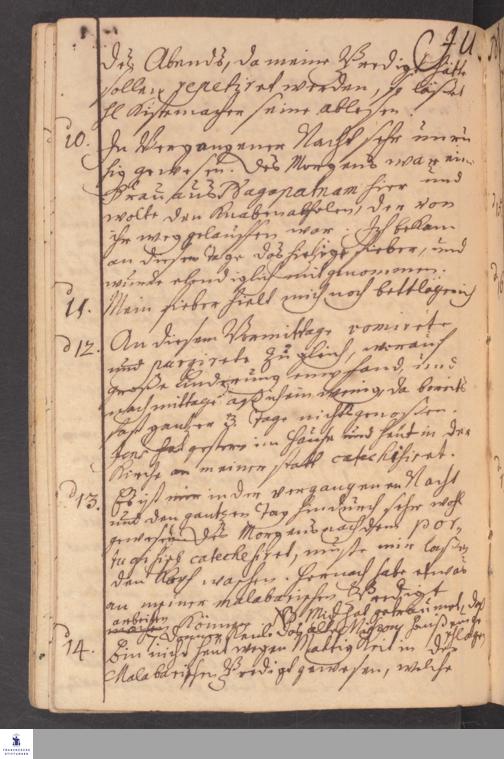 des Abends, da meine Predigt hätte
sollen repetiret werden, so lässet
H. Kistenmacher seine ablesen.
d 10. In vergangener Nacht sehr unru
hig gewesen. Des Morgens war eine
Frau aus Nagapatnam hier und
wolte den Knaben abholen, der von
ihr weggelauffen war. Ich bekam
an diesem Tage das hitzige Fieber, und
wurde elendiglich mitgenommen.
d 11. Mein Fieber hielt mich noch bettlägerich
d 12. An diesem Vormittage vomirete
und purgirete zugleich, worauf
große Änderung empfand, und
nachmittags aß ich ein wenig, da bereits
fast gantzer 3 Tage nichts genossen.
hat gestern im Hause und heut in der
Kirche an meiner statt catechisiret.
d 13. Es ist mir in der vergangenen Nacht
und den gantzen Tag hindurch sehr wohl
gewesen. Des Morgens nach dem Por-
tugisisch catechesiret, muste mir lassen
den Kopf waschen. Hernach habe etwas
an meiner malabarischen Predigt
arbeiten können. Mich hat geträumet, daß
d 14. Bin nicht heut wegen Mattigkeit in der
Malabarischen Predigt gewesen, welche